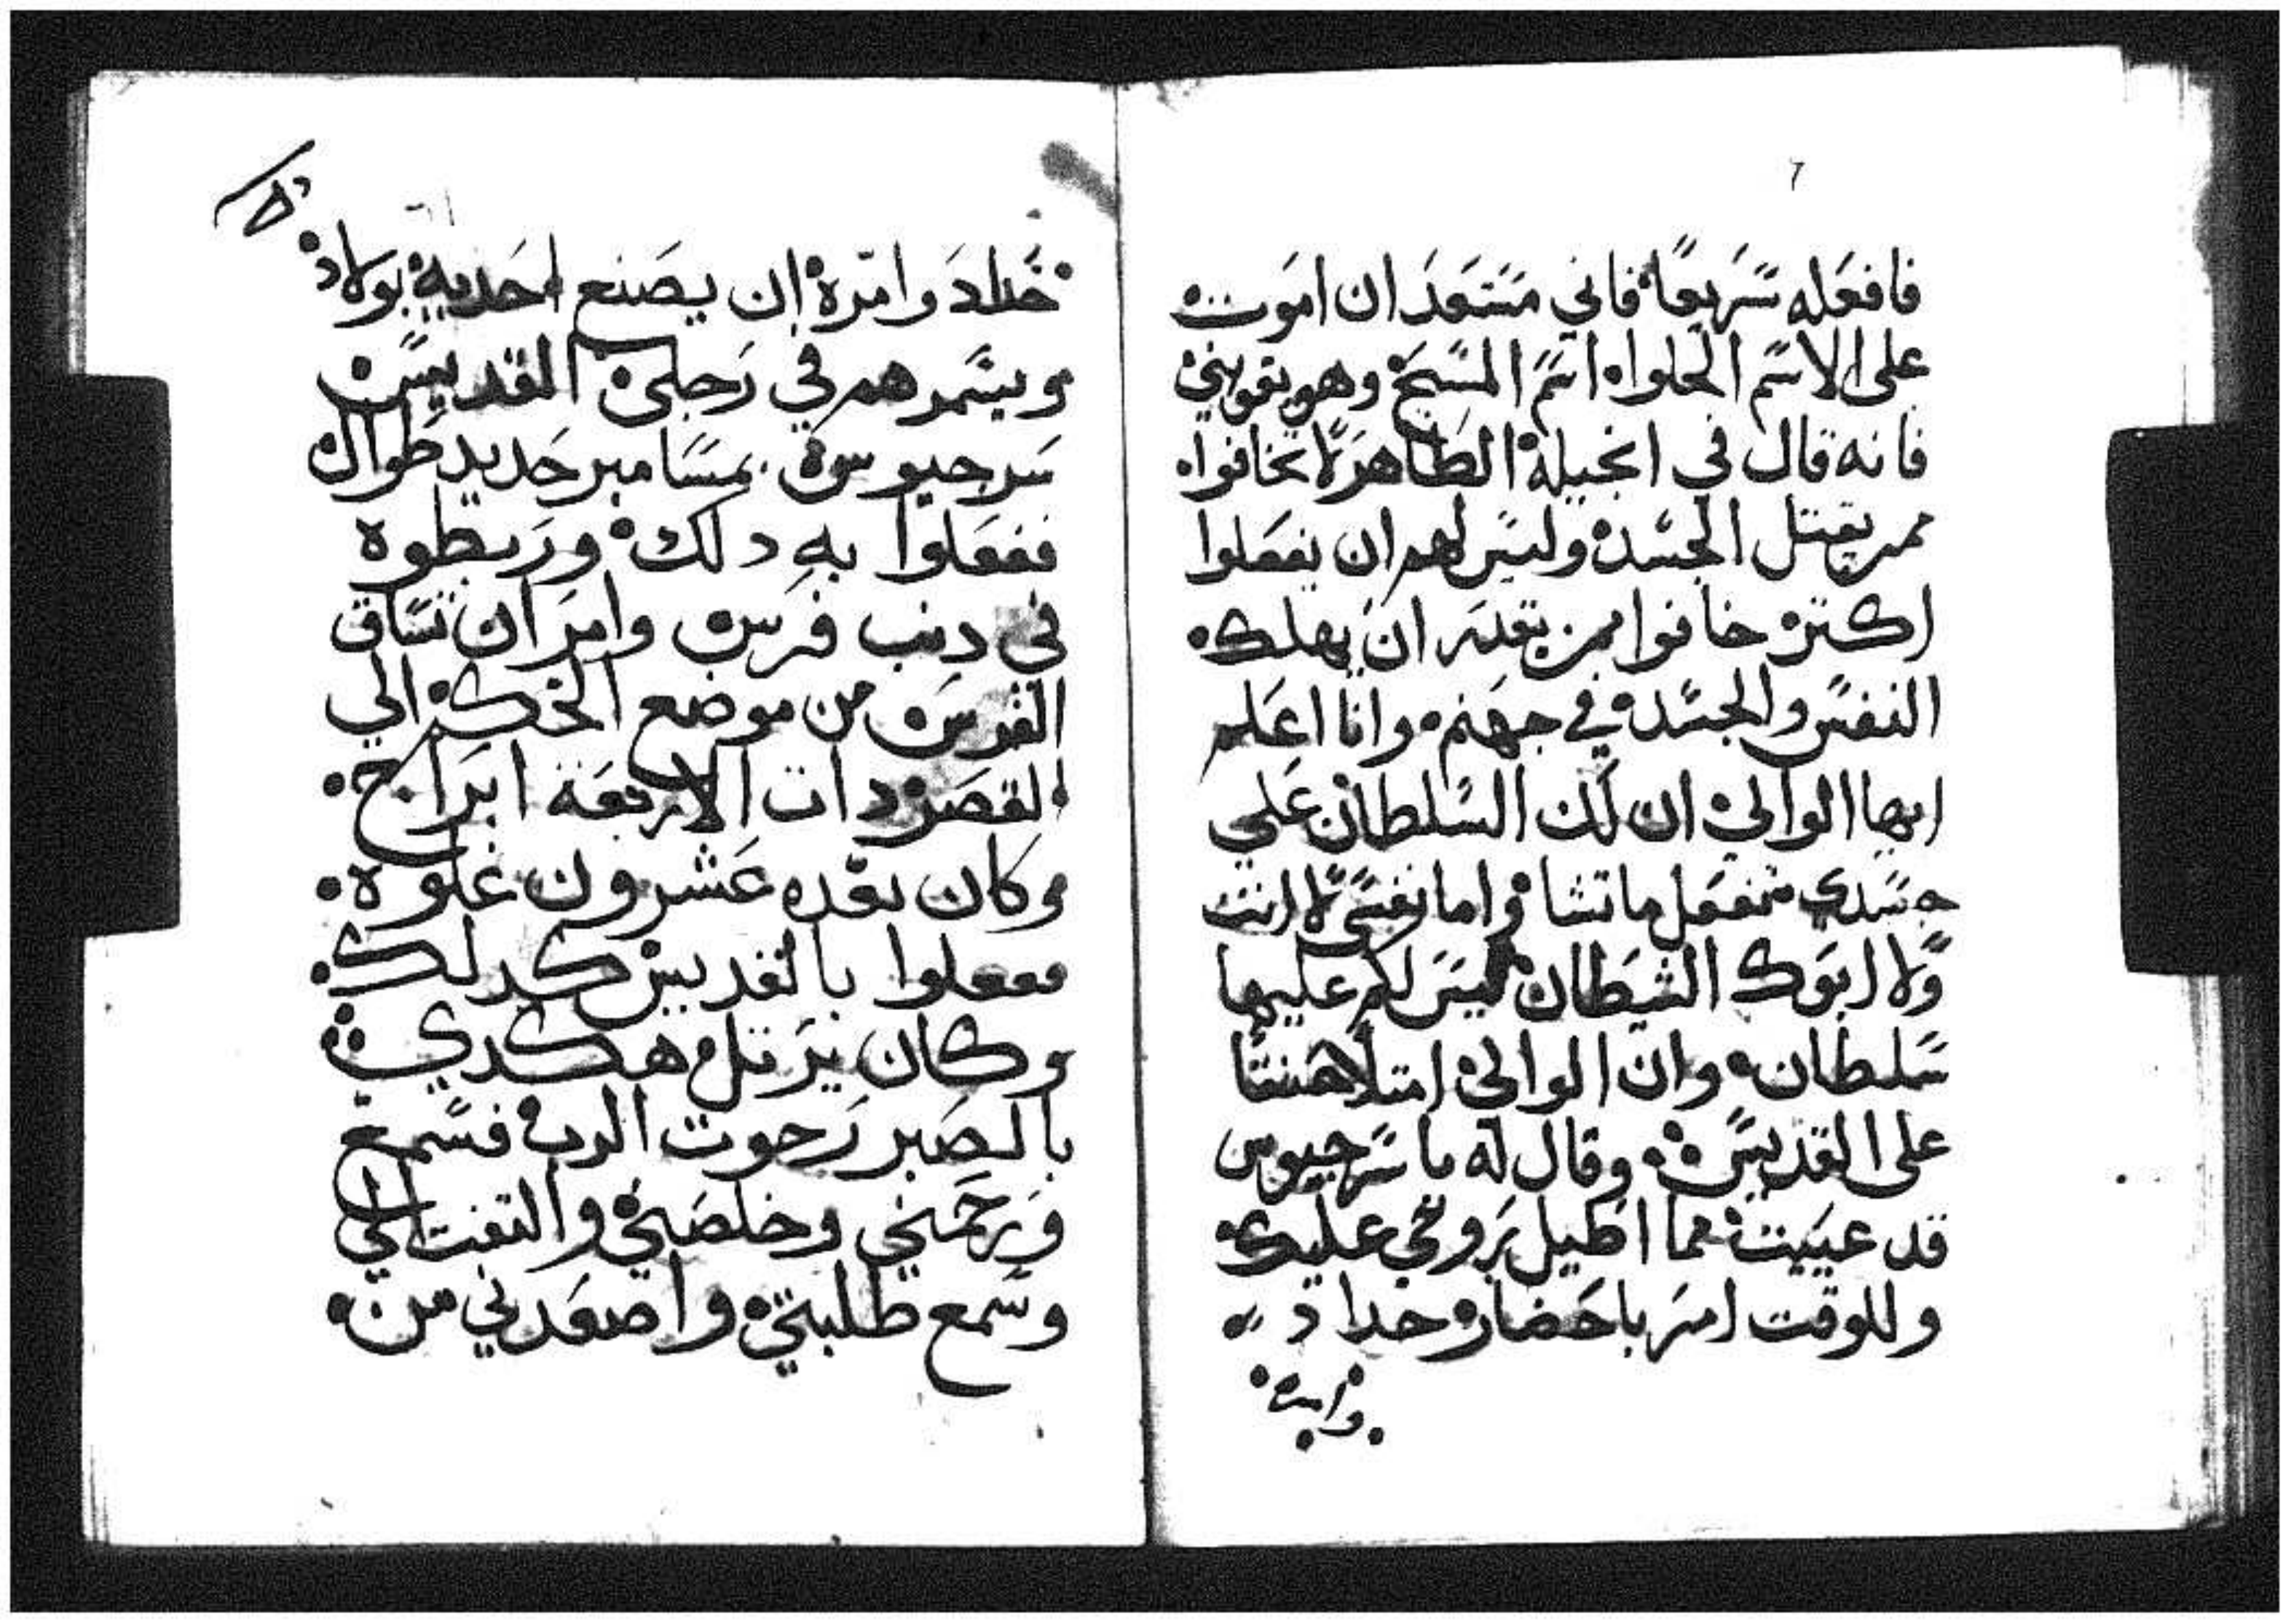 فافعله سريعًا فاني مستعد ان اموت
على الاسم الحلوا اسم المسيح وهو يقويني
فانه قال في انجيله الطاهر لا تخافوا
ممن يقتل الجسد وليس لهم ان يفعلوا
اكتر خافوا ممن يقدر ان يهلك
النفس والجسد في جهنم وانا اعلم
ايها الوالي ان لك السلطان علي
جسدي تفعل ما تشا واما نفسي لا انت
ولا ابوك الشيطان ليس لكم عليها
سلطان وان الوالي امتلا
على القديس وقال له يا سرجيوس
قد عييت مما اطيل بروحي عليك
وللوقت امر باحضار حداد
وامره
حداد وامره ان يصنع احديه بولاد
ويسمرهم في رجلي القديس
سرجيوس بمسامير حديد طوال
ففعلوا به دلك وربطوه
في دنب فرس وامر ان تساق
الفرس من موضع الحكم الي
القصر دات الاربعة ابراج
وكان بعده عشرون غلوه
ففعلوا بالقديس كدلك
وكان يرتل هكدي
بالصبر رجوت الرب فسمع
ورحمني وخلصني والتفت الي
وسمع طلبتي واصعدني من